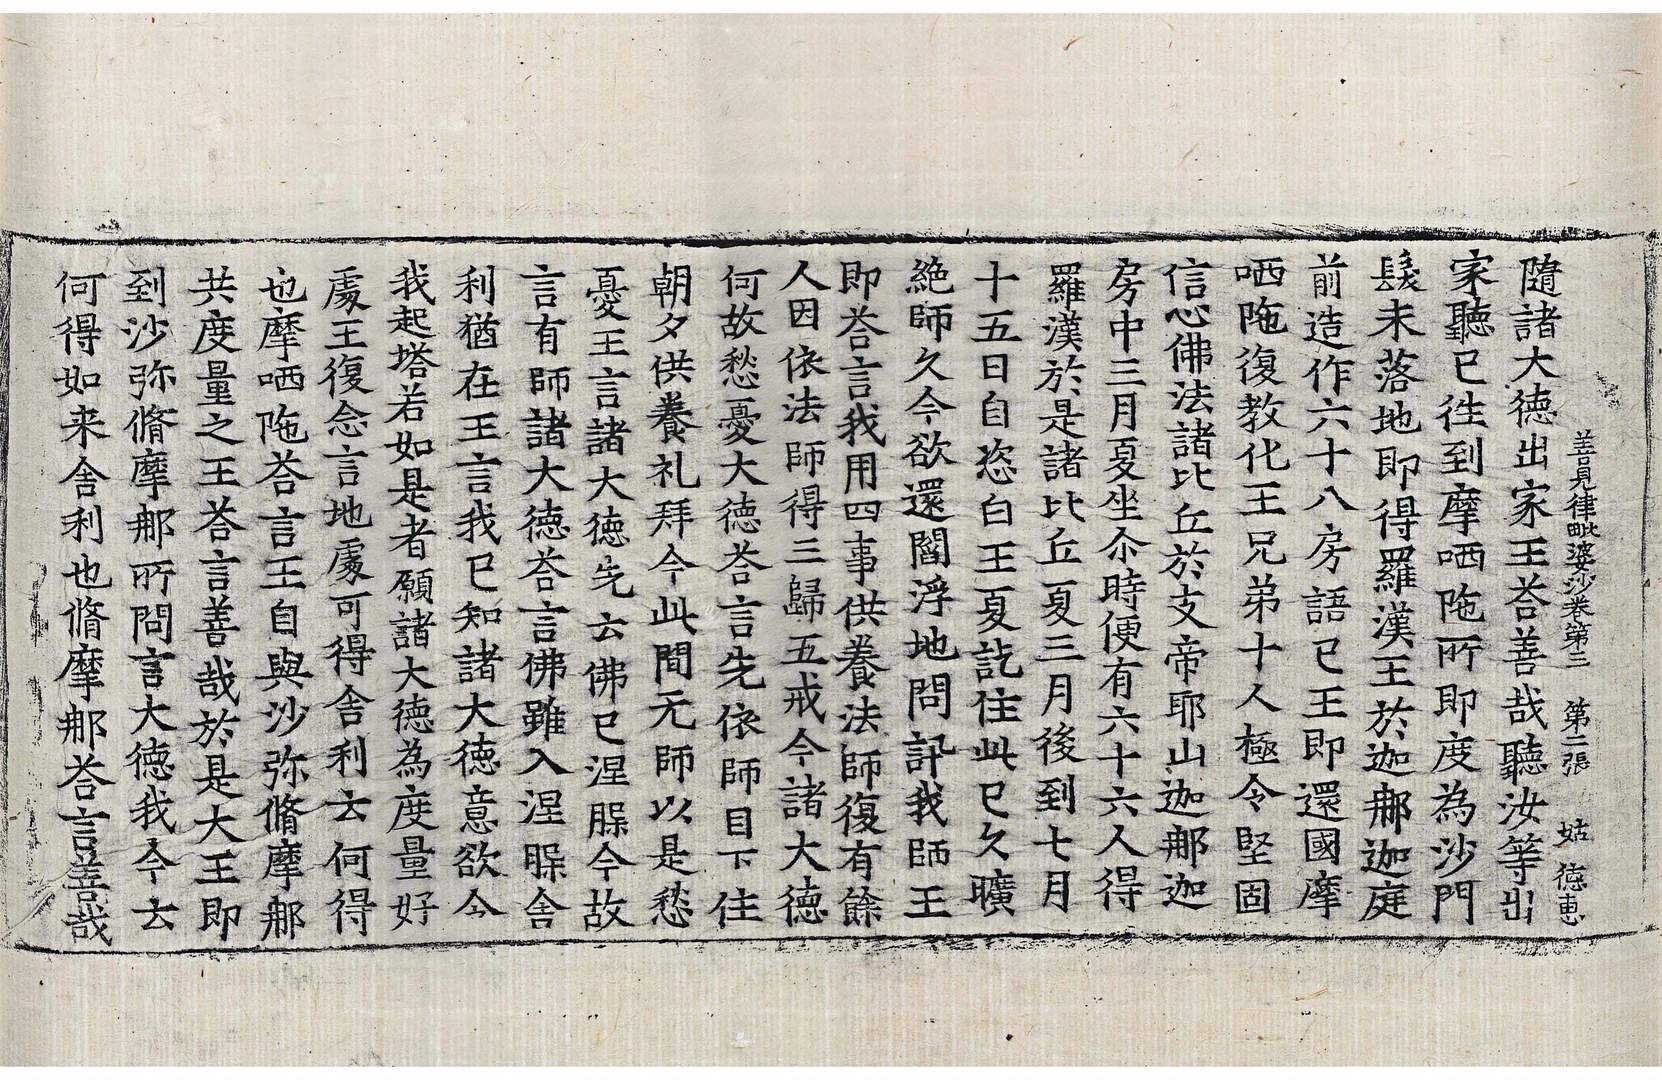 善見律毗婆沙卷第三　第二張　姑　德惠
隨諸大德出家王荅善哉聽汝等出
家聽已徃到摩哂陁所即度為沙門
髮未落地即得羅漢王於迦那迦庭
前造作六十八房語已王即還國摩
哂陁復教化王兄弟十人極令堅固
信心佛法諸比丘於支帝耶山迦那迦
房中三月夏坐尒時便有六十六人得
羅漢於是諸比丘夏三月後到七月
十五日自恣白王夏訖住此已久曠
絶師久今欲還閻浮地問訊我師王
即荅言我用四事供養法師復有餘
人因依法師得三歸五戒今諸大德
何故愁憂大德荅言先依師目下住
朝夕供養礼拜今此間无師以是愁
憂王言諸大德先云佛已涅腂今故
言有師諸大德荅言佛雖入涅腂舍
利猶在王言我已知諸大德意欲令
我起塔若如是者願諸大德為度量好
處王復念言地處可得舍利云何得
也摩哂陁荅言王自與沙弥脩摩那
共度量之王荅言善哉於是大王即
到沙弥脩摩那所問言大德我今云
何得如来舍利也脩摩那荅言善哉